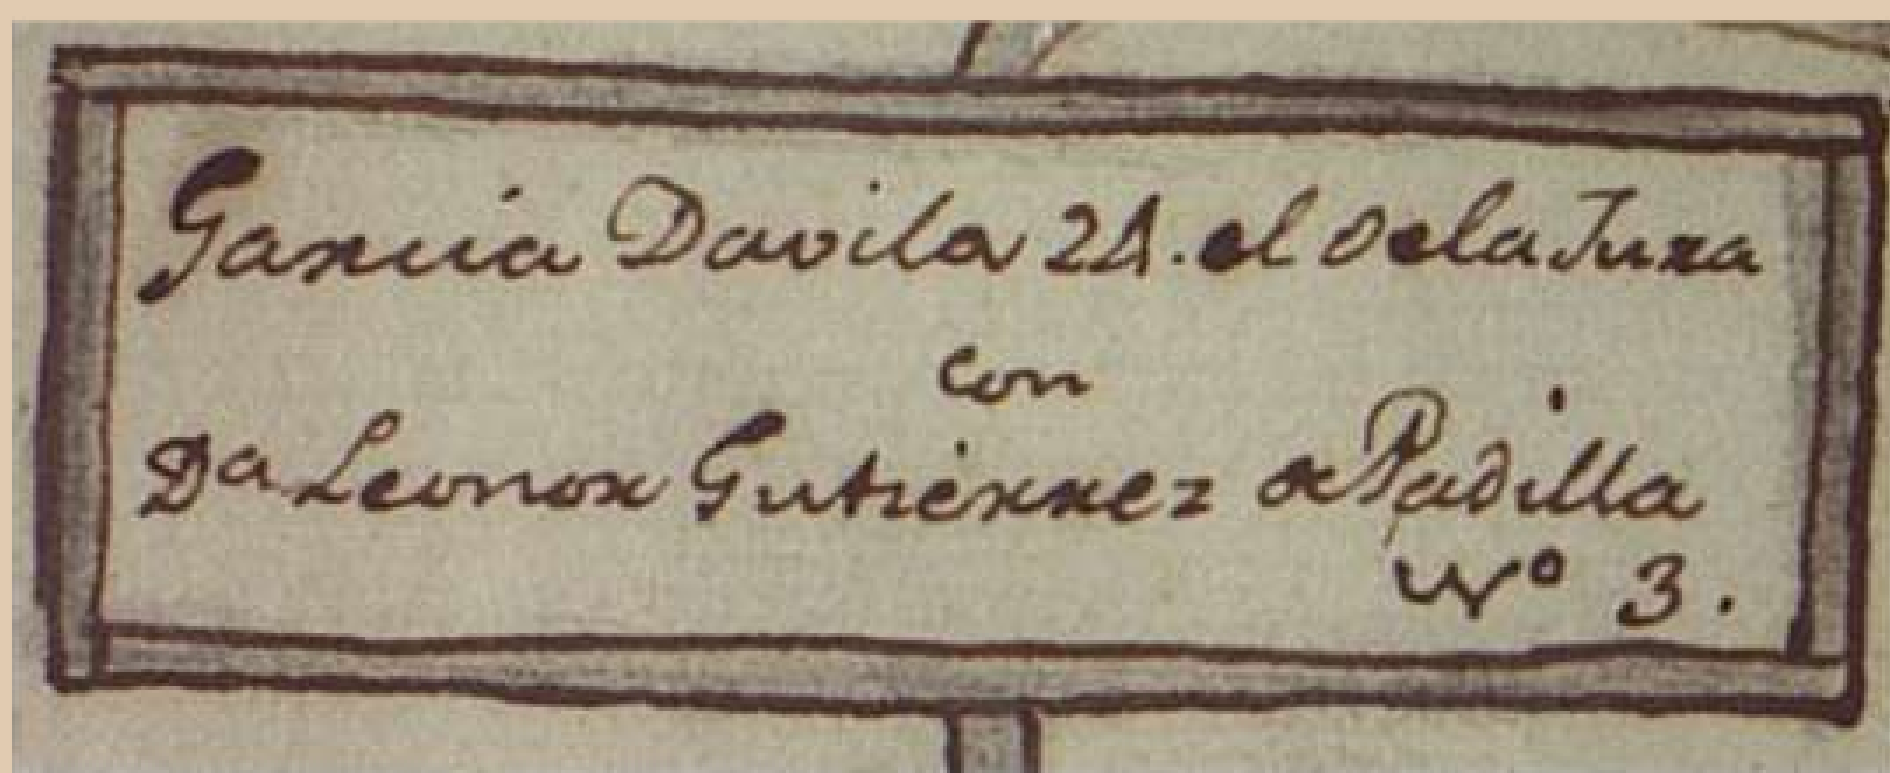 Garcia Davila 24. el de la Jura
con
Da Leonor Gutierrez de Padilla
Nº 3.